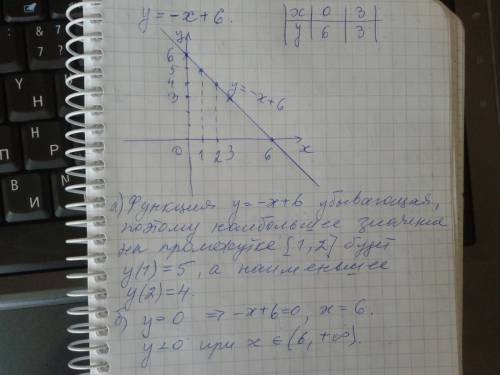 y = -x + 6.
x 0 3
y 6 3
y
6
5
4
3
y = -x+6
0 1 2 3 6 x
а) Функция y = -x+6 убывающая,
поэтому наибольшее значение
на промежутке [1,2] будет
y(1)=5, а наименьшее
y(2)=4.
б) y=0 ⇒ -x+6=0, x=6.
y<0 при x ∈ (6, +∞).
&
7
?
Y
H
Н
N
П
В
И